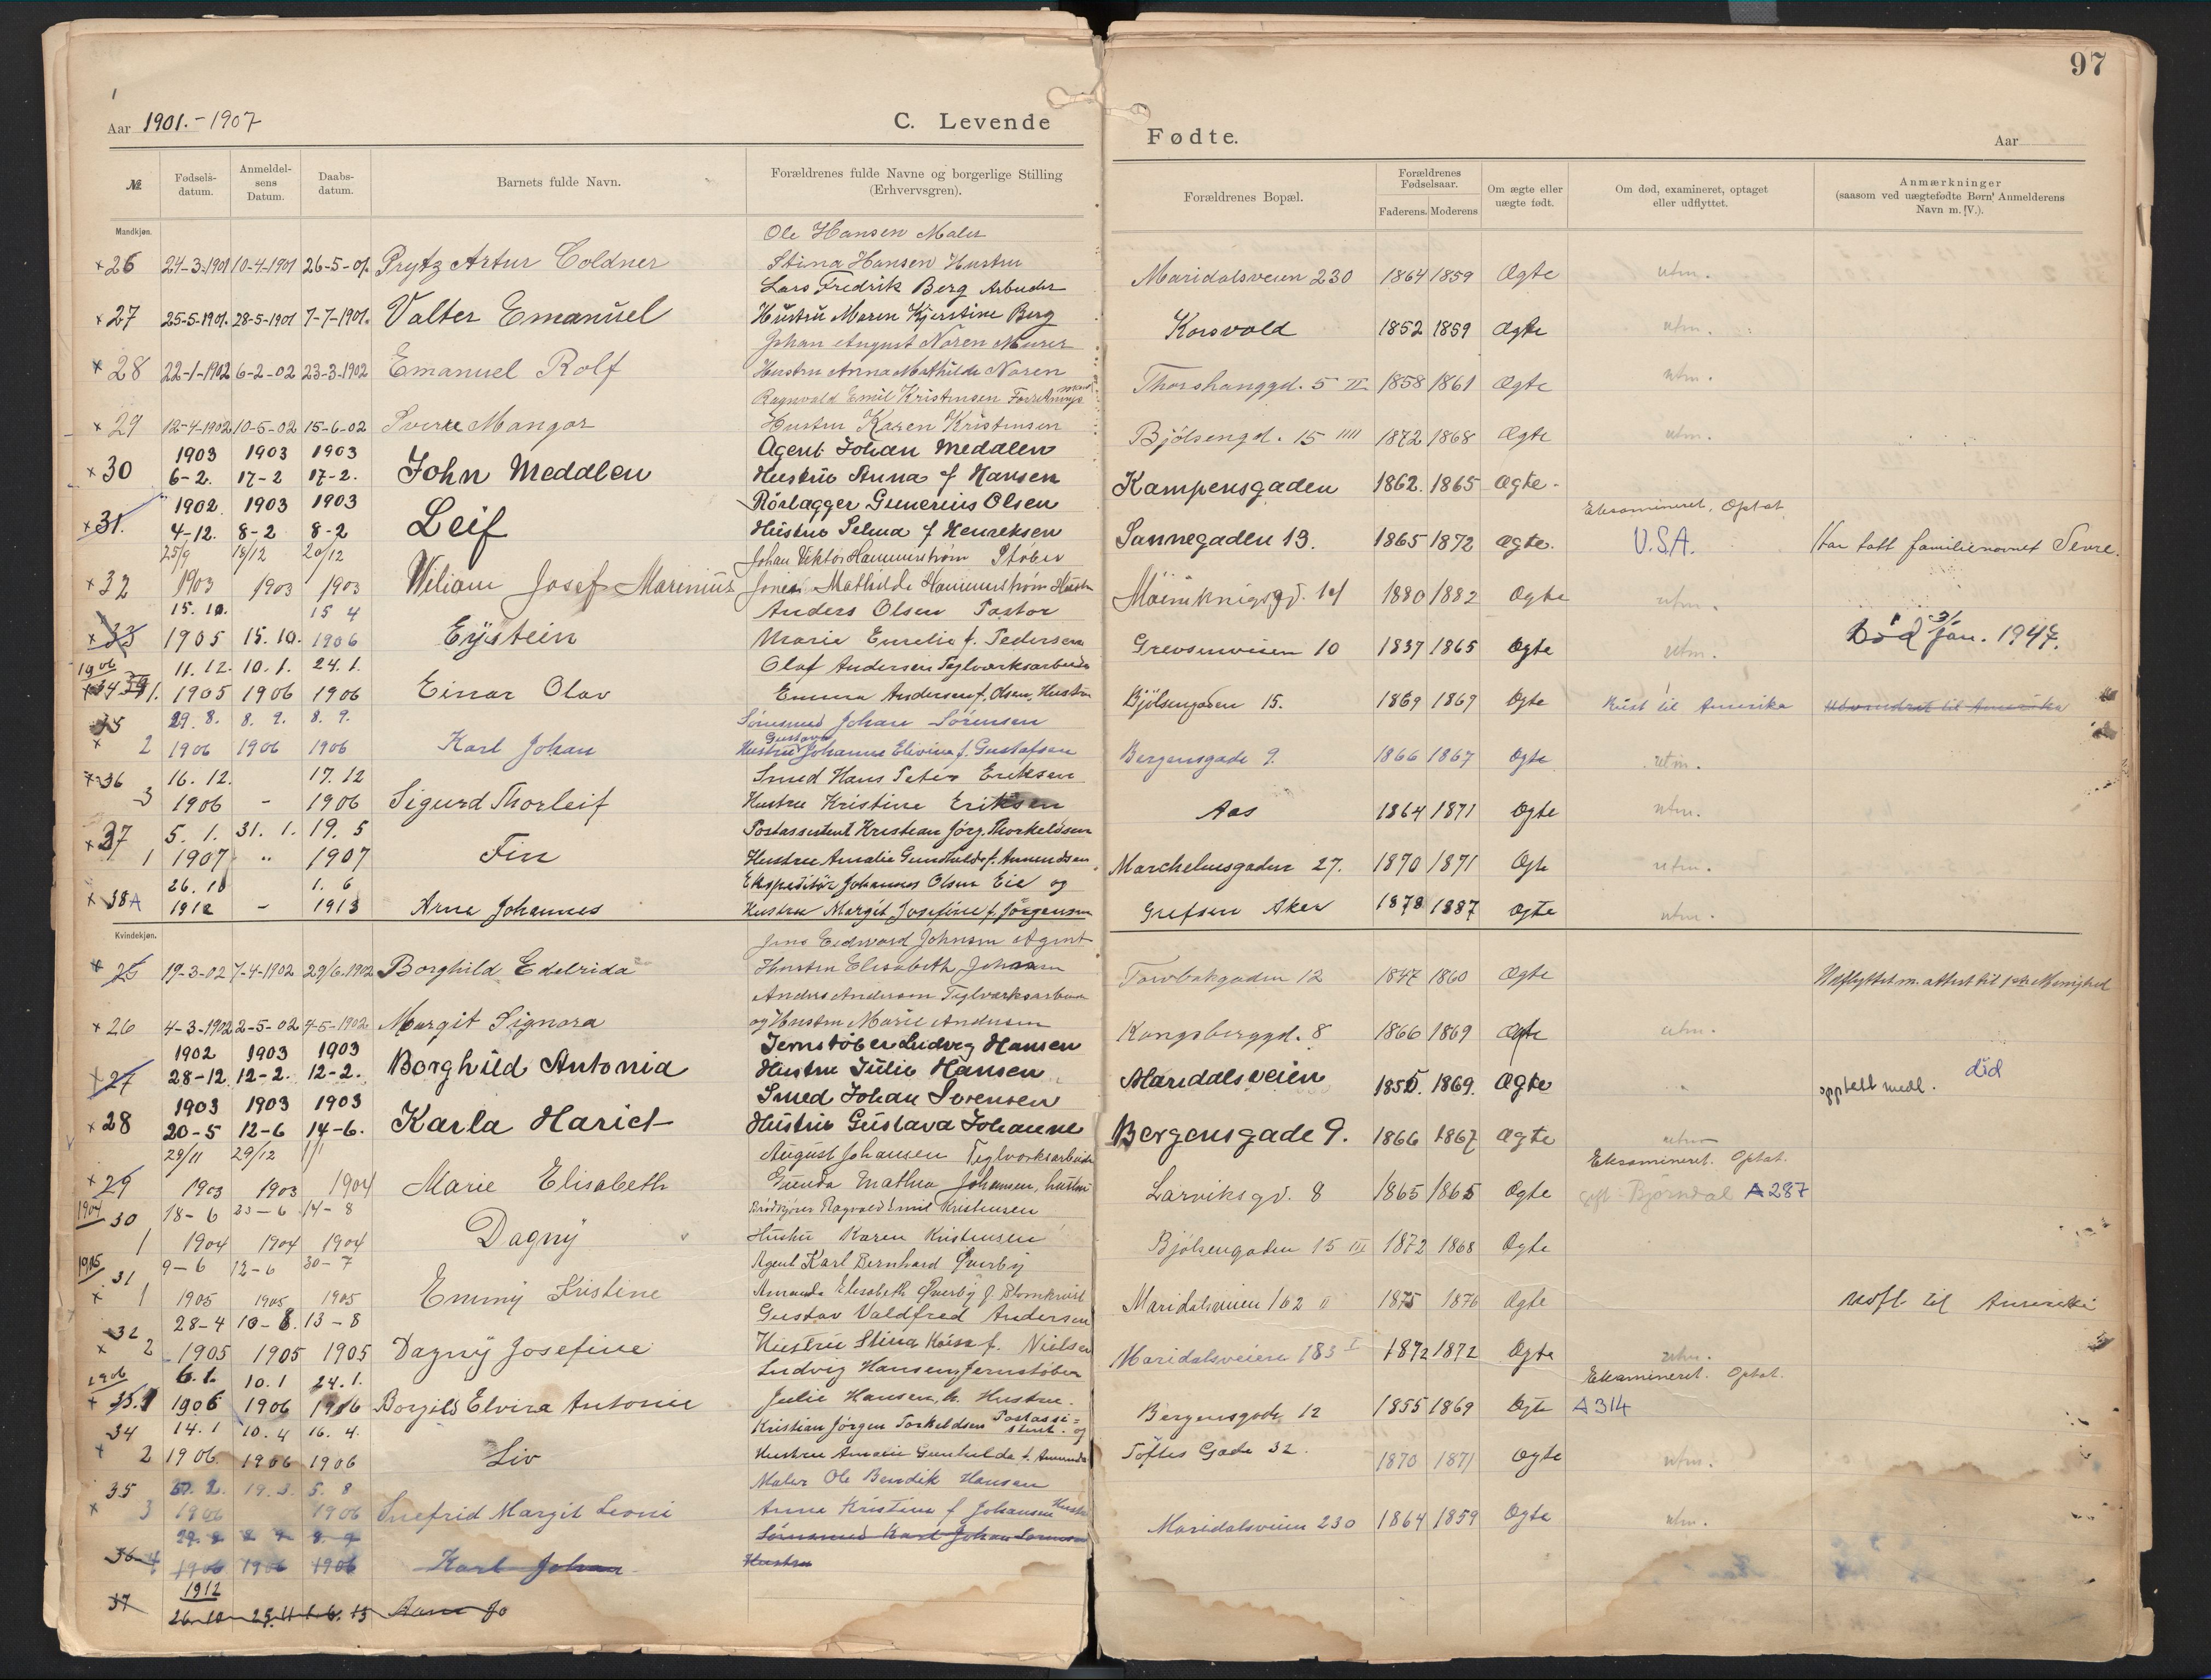 97
Aar 1901.-1907
C. Levende
Fødte.
Aar
№.
Fødsels-datum.
Anmeldel-sens Datum.
Daabs-datum.
Barnets fulde Navn.
Forældrenes fulde Navne og borgerlige Stilling (Erhvervsgren).
Forældrenes Bopæl.
Forældrenes Fødselsaar.
Faderens. Moderens
Om ægte eller uægte født.
Om død, examineret, optaget eller udflyttet.
Anmærkninger (saasom ved uægtefødte Børn Anmelderens Navn m. V.).
Mandkjøn.
Ole Hansen Maler
×26 24-3-1901 10-4-1901 26-5-01. Prytz Artur Coldner Stina Hansen Hustru Maridalsveien 230 1864 1859 Ægte utm.
Lars Fredrik Berg Arbeider
×27 25-5-1901. 28-5-1901 7-7-1901. Valter Emanuel Hustru Maren Kjerstine Berg Korsvold 1852 1859 Ægte utm.
Johan August Noren Murer
×28 22-1-1902 6-2-02 23-3-1902 Emanuel Rolf Hustru Anna Mathilde Noren Thorshauggd. 5 II 1858 1861 Ægte utm.
Ragnvald Emil Kristensen Forretnings mand
×29 12-4-1902 10-5-02 15-6-02 Sverre Mangor Hustru Karen Kristensen Bjölsengd. 15 IIII 1872 1868 Ægte utm.
1903 1903 1903 Agent Johan Medalen
×30 6-2. 17-2 17-2. John Meddlen Hustru Anna f Hansen Kampensgaden 1862. 1865 Ægte.
1902 1903 1903 Rörlægger Gunerius Olsen Eksamineret, Optat
×31. 4-12. 8-2 8-2 Leif Hustru Selma f Henreksen Sannegaden 13. 1865 1872 Ægte. U.S.A. Har tatt familienavnet Sevre.
25/9 18/12 20/12 Johan Viktor Hammerstrøm Støber
×32 1903 1903 1903 Wiliam Josef Marinius Mathilde Hammerstrøm Hustru 14 1880 1882 Ægte utm.
15. 10. 15 4 Anders Olsen Pastor
×33 1905 15. 10. 1906 Eystein Marie Emelie f. Pedersen Grevsenveien 10 1837 1865 Ægte utm. Död 31/ Jan. 1947.
1906 11. 12. 10. 1. 24. 1. Olaf Andersen Teglverksarbeider
34 1. 1905 1906 1906 Einar Olav Emma Andersen f. Olsen, Hustru Bjölsengaden 15. 1869 1869 Ægte Reist til Amerika Udvandret til Amerika
35 29. 8. 8. 9. 8. 9. Sömsmed Johan Sörensen
× 2 1906 1906 1906 Karl Johan Hustru Gustava Johanne Elivine f. Gustafsen Bergensgade 9. 1866 1867 Ægte utm.
×36 16. 12. 17. 12 Smed Hans Peter Eriksen
3 1906 - 1906 Sigurd Thorleif Hustru Kristine Eriksen Aas 1864 1871 Ægte utm.
×37 5. 1. 31. 1. 19. 5 Postassistent Kristian Jörg. Thorkeldsen
1 1907 " 1907 Fin Hustru Amalie Gunhilde f. Amundsen Marchelusgaden 27. 1870 1871 Ægte utm.
26. 10 1. 6 Ekspeditör Johannes Olsen Eie og
×38A 1912 - 1913 Arne Johannes Hustru Margit Josefine f. Jörgensen Grefsen Aker 1878 1887 Ægte utm.
Kvindekjøn.
Jens Eedward Johnsen Agent
×25 19-3-02 7-4-1902 29/6.1902 Borghild Edelrida Hustru Elisabeth Johnsen 12 1847 1860 Ægte Udflyttet m. attest til 1ste Menighed
Anders Andersen Teglverksarbeider
×26 4-3-1902 2-5-02 4-5-1902 Margit Signora og Hustru Marie Andersen Kongsberggd. 8 1866 1869 Ægte utm.
1902 1903 1903 Jernstöber Ludvig Hansen
×27 28-12. 12-2. 12-2. Borghild Antonia Hustru Julie Hansen Maridalsveien 1855. 1869. Ægte opptatt medl. död
1903 1903 1903 Smed Johan Sorensen
×28 20-5 12-6 14-6. Karla Hariet Hustru Gustava Johanne Bergensgade 9. 1866 1867 Ægte utm
29/11 29/12 1/1 August Johansen Teglverksarbeider Eksamineret. Optat.
×29 1903 1903 1904 Marie Elisabeth Gunda Mathea Johansen, hustru Larviksgd. 8 1865 1865 Ægte gift Bjørndal A287
1904 30 18-6 23-6 14-8 Ragvald Emil Kristensen
1 1904 1904 1904 Dagny Hustru Karen Kristensen Bjölsengaden 15 III 1872 1868 Ægte
1905 31 9-6 12-6 30-7 Agent Karl Bernhard Qverby
× 1 1905 1905 1905 Emmy Kristine Amanda Elisabeth Qverby f. Blomkvist Maridalsveien 162 II 1875 1876 Ægte utfl. til Amerika
32 28-4 10-8. 13-8 Gustav Valdfred Andersen
× 2 1905 1905 1905 Dagny Josefine Hustru Stina Kaisa f. Nielsen Maridalsveien 183 I 1872 1872 Ægte utm.
1906 6. 1. 10. 1 24. 1. Ludvig Hansen, Jernstöber Eksamineret. Optat.
×33. 1 1906 1906 1906 Borgild Elvira Antonie Julie Hansen, h. Hustru. Bergensgade 12 1855 1869 Ægte A314
34 14. 1 10. 4 16. 4. Kristian Jörgen Torkeldsen Postassi=stent. og
× 2 1906. 1906 1906 Liv Hustru Amalie Gunhilde f. Amunds Töftes Gade 32. 1870 1871 Ægte utm.
35 20. 2. 19. 3. 5. 8 Maler Ole Bendik Hansen
× 3 1906 1906 Snefrid Margit Leoni Anna Kristine f Johansen Hustru Maridalsveien 230 1864 1859 Ægte utm.
29. 8 8 9 8. 9 Sömsmed Karl Johan Sörensen
36 4 1906 1906 1906 Karl Johan Hustru
1912
37 26-10 25.11 1. 6. 13 Arne Jo